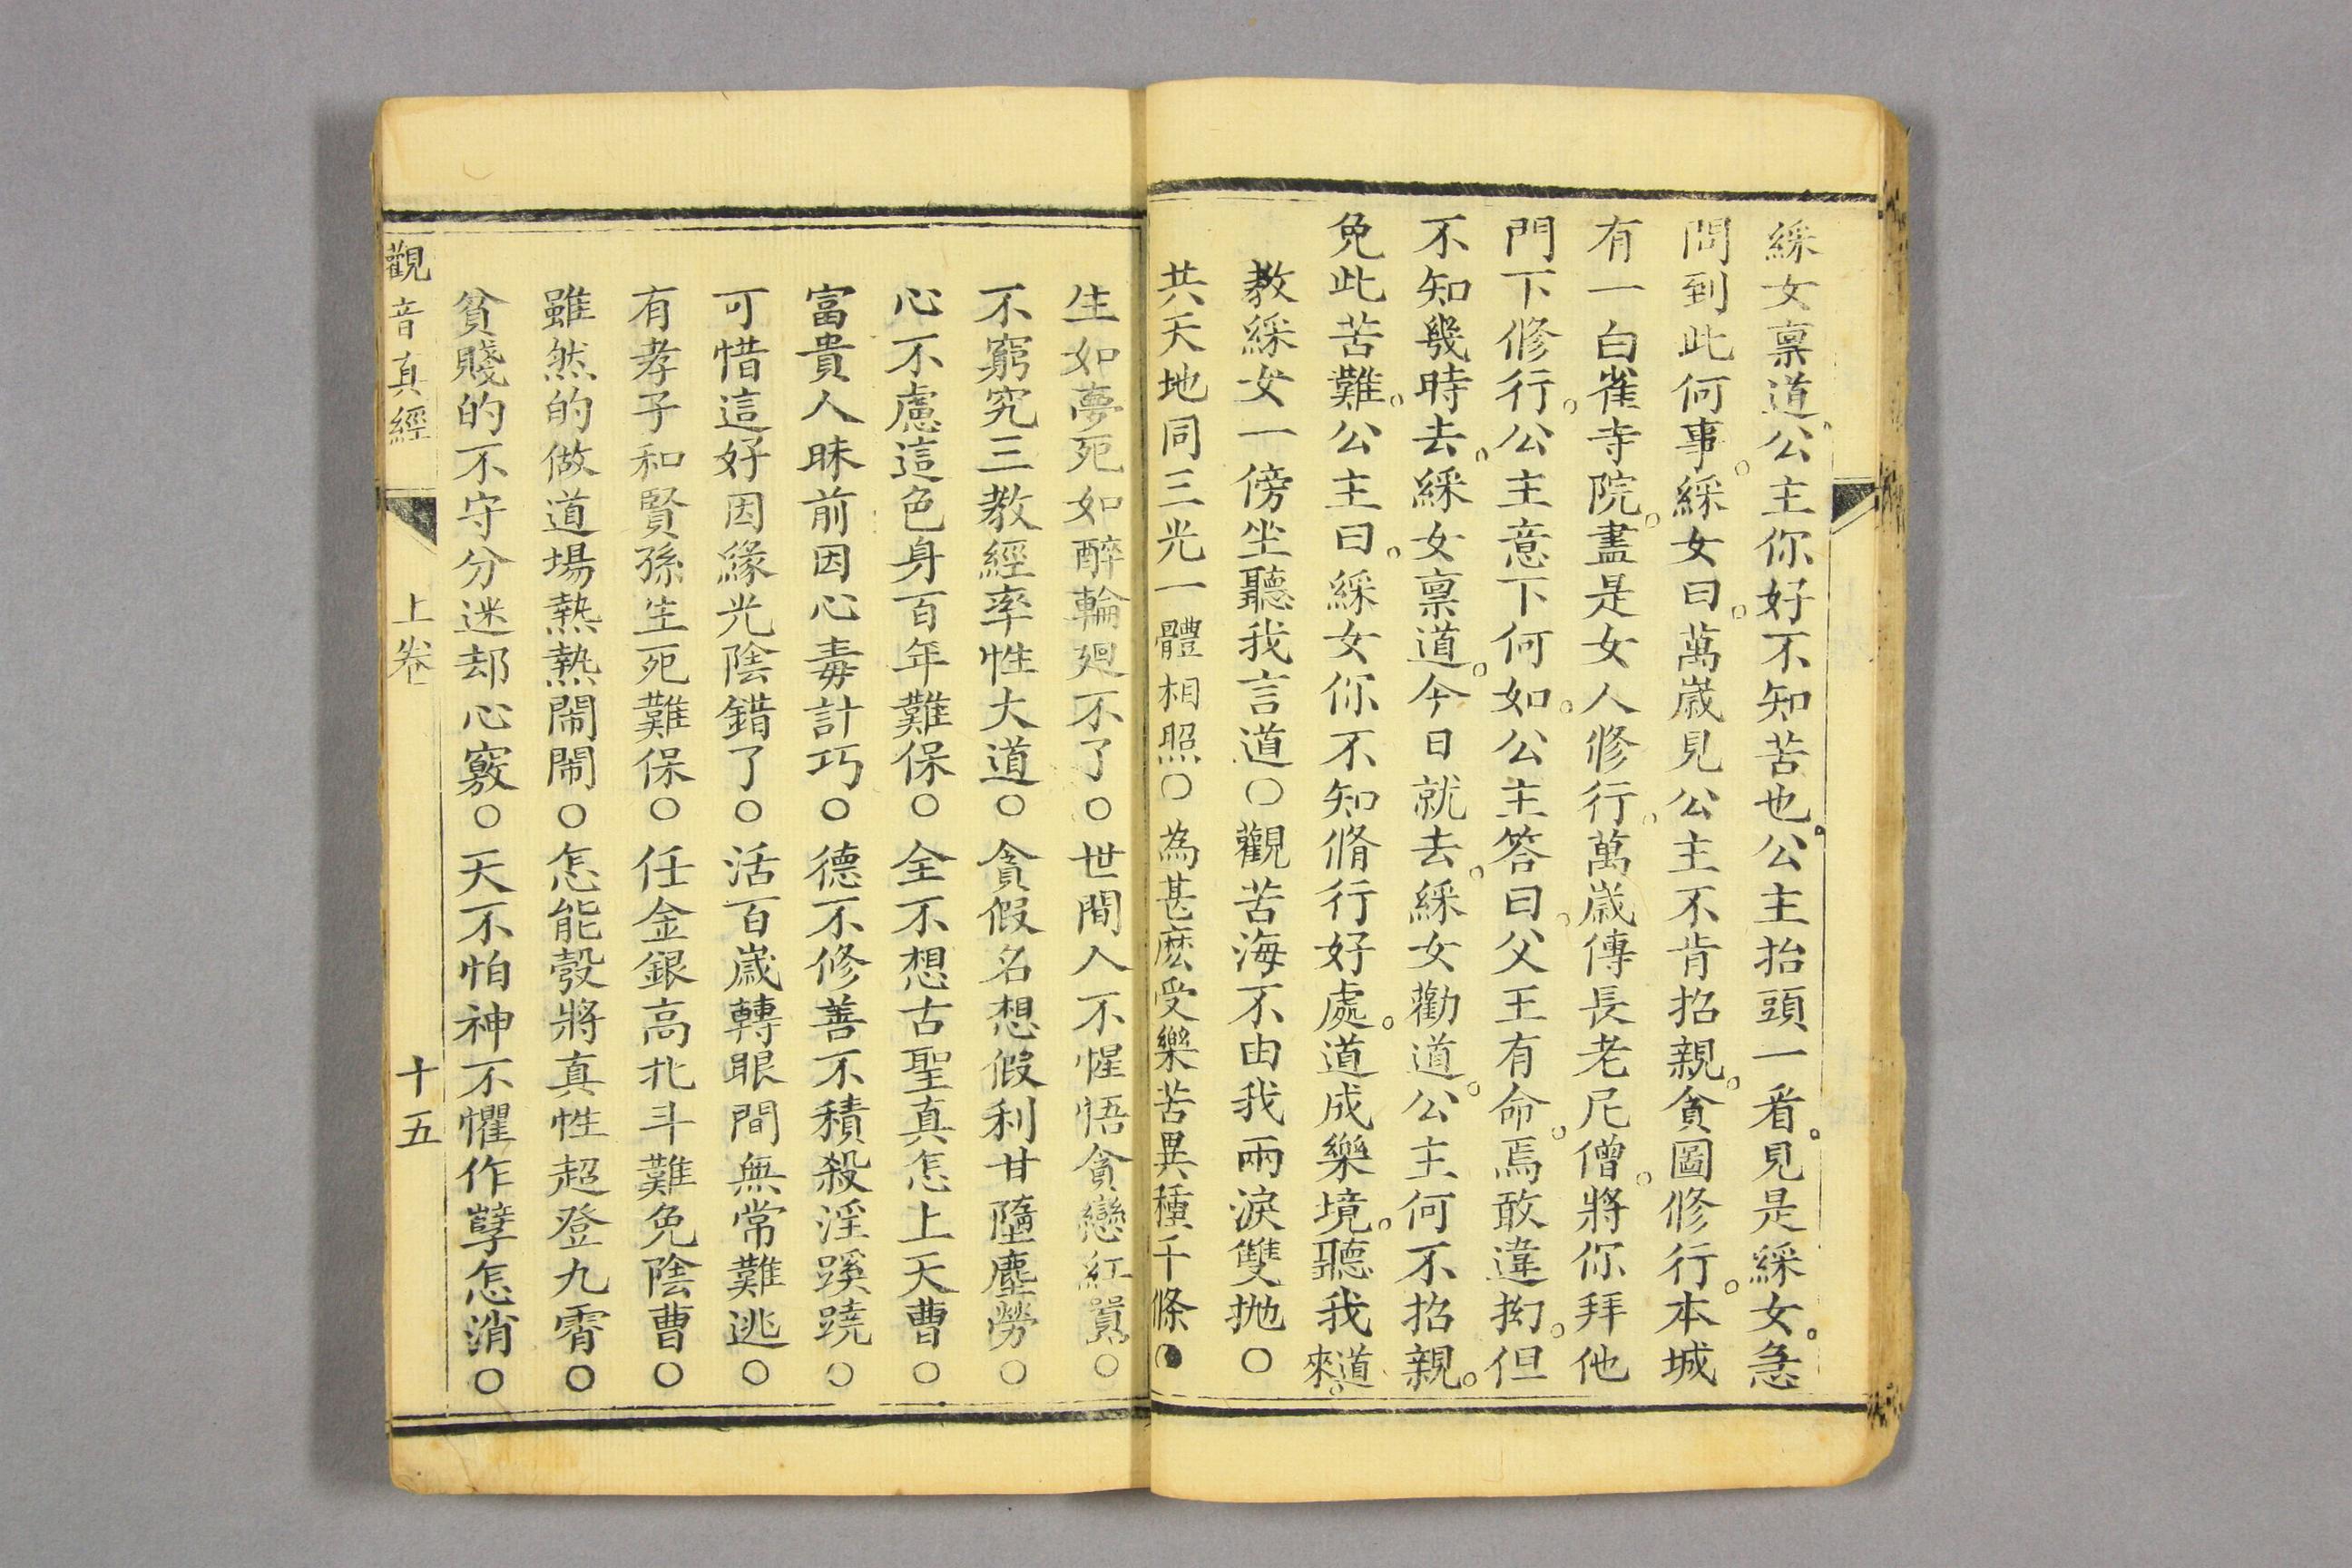 綵女稟道。公主你好不知苦也。公主抬頭一看。見是綵女。急
問到此何事。綵女曰。萬歲見公主不肯招親。貪圖修行。本城
有一白雀寺院。盡是女人修行。萬歲傳長老尼僧。將你拜他
門下修行。公主意下何如。公主答曰。父王有命。焉敢違拗。但
不知幾時去。綵女稟道。今日就去。綵女勸道。公主何不招親。
免此苦難。公主曰。綵女你不知脩行好處。道成樂境。聽我道來。
教綵女一傍坐聽我言道○觀苦海不由我兩淚雙拋○
共天地同三光一體相照○為甚麽受樂苦異種千條○
生如夢死如醉輪廻不了○世間人不惺悟貪戀紅嚣○
不窮究三教經率性大道○貪假名想假利甘墮塵勞○
心不慮這色身百年難保○全不想古聖真怎上天曹○
富貴人昧前因心毒計巧○德不修善不積殺淫蹊蹺○
可惜這好因緣光陰錯了○活百歲轉眼間無常難逃○
有孝子和賢孫生死難保○任金銀高北斗難免陰曹○
雖然的做道場熱熱鬧鬧○怎能彀將真性超登九霄○
貧賤的不守分迷却心竅○天不怕神不懼作孽怎消○
觀音真經 上卷 十五